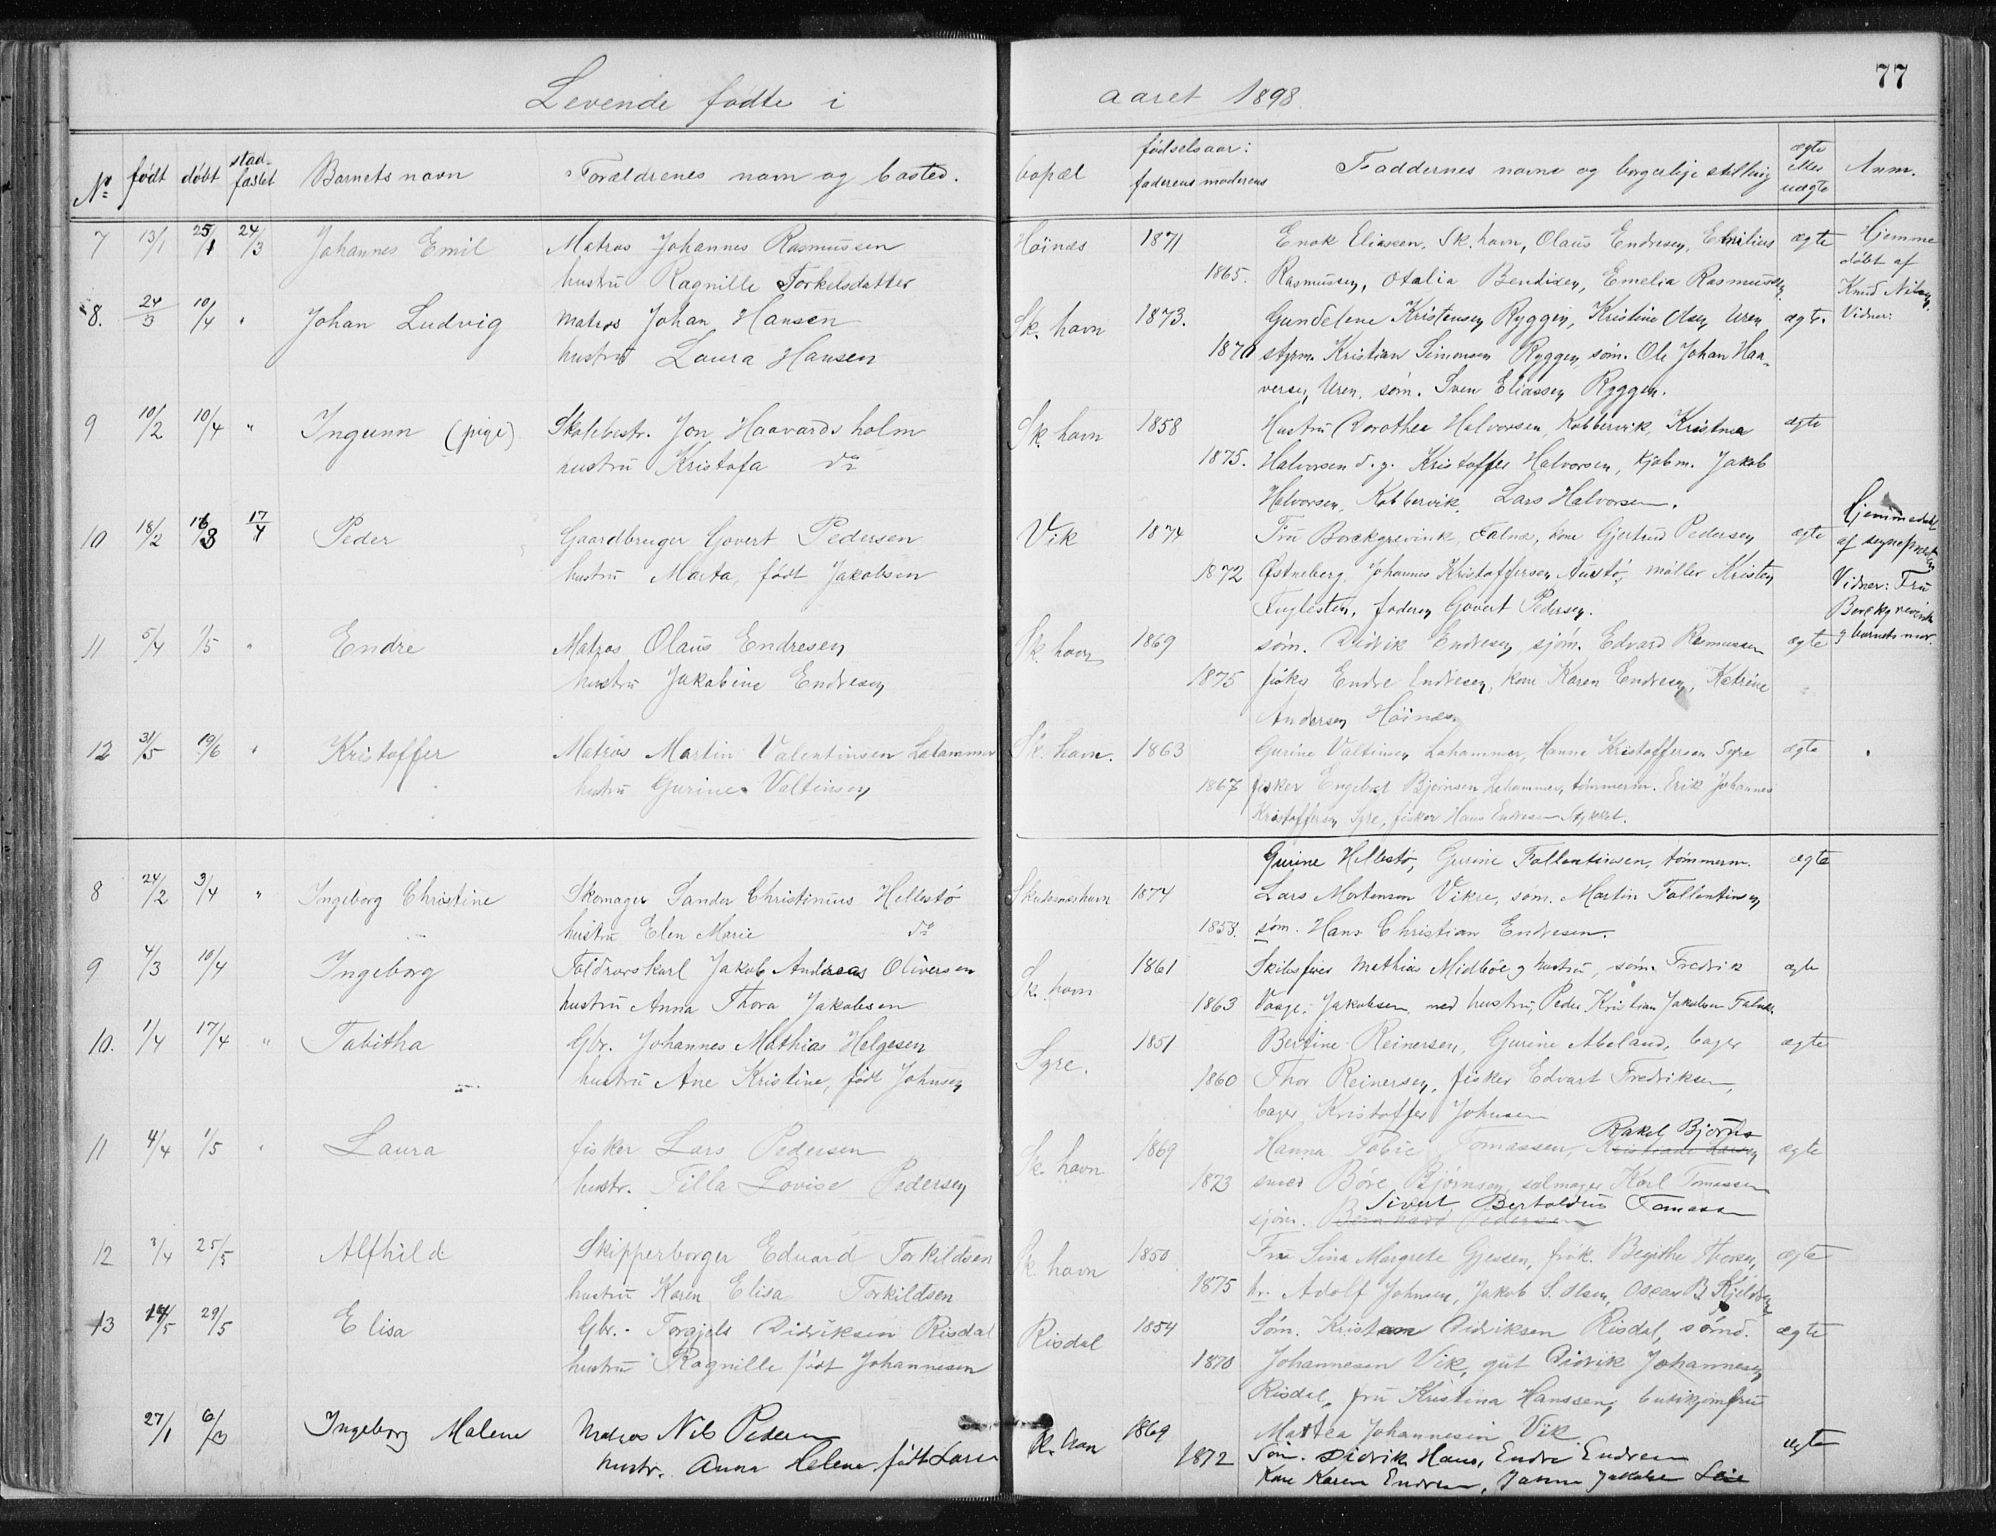 77
Levende fødte i aaret 1898.
No født døbt stadfæstet Barnets navn Forældrenes navn og bosted. bopæl fødselsaar: faderens moderens Faddernes navne og borgerlige stilling ægte eller uægte Anm.
7 13/1 25/1 24/3 Johannes Emil Matros Johannes Rasmussen Høines 1871 Enok Eliassen, Sk.havn, Olaus Endresen, Emilius ægte Hjemme
hustru Ragnille Torkelsdatter 1865. Rasmussen, Otalia Bendixen, Emelia Rasmussen døbt af
Knud Nilsen
Vidner:
8. 24/3 10/4 " Johan Ludvig Matros Johan Hansen Sk. havn 1873. Gundeline Kristensen Ryggen, Kristine Olsen Uren ægte.
hustru Laura Hansen 1870 styrm. Kristian Simonsen Ryggen, søm. Ole Johan Haa-
versen, Uren, søm. Sven Eliassen Ryggen.
9 10/2 10/4 " Ingunn (pige) Skolebestr. Jon Haavardsholm Sk. havn 1858 Hustru Dorothea Halvorsen, Kobbervik, Kristna ægte
hustru Kristofa do 1875. Halvorsen d.y. Kristoffer Halvorsen, kjøbm. Jakob
Halvorsen, Kobbervik, Lars Halvorsen.
10 18/2 16/3 17/4 Peder Gaardbruger Govert Pedersen Vik 1874 Fru Borckgrevink, Falnæs, kone Gjertrud Pedersen ægte Hjemmedøbt
hustru Marta, født Jakobsen 1872 Østneberg, Johannes Kristoffersen Aurstø, møller Kristen af sognepresten
Fuglesten, faderen Govert Pedersen. Vidner: Fru
Borckgrevink
og barnets mor.
11 5/4 1/5 " Endre Matros Olaus Endresen Sk. havn 1869 søm. Didrik Endresen, sjøm. Edvard Rasmussen ægte
hustru Jakobine Endresen 1875 fisker Endre Endresen, kone Karen Endresen, Katrine
Andersen Høines
12 31/5 19/6 " Kristoffer Matros Martin Valentinsen Lahammer Sk. havn. 1863 Gurine Valtinsen Lahammer, Hanna Kristoffersen Syre ægte
hustru Gurine Valtinsen 1867 fisker Engebret Bjørnsen Lahammer, tømmerm. Erik Johannes
Kristoffersen Syre, fisker Hans Endresen Stykket.
Gurine Hellestø, Gurine Fallentinsen, tømmerm. ægte
8 24/2 3/4 " Ingeborg Christine Skomager Sander Christinius Hellestø Skudesneshavn 1874 Lars Mortensen Vikre, søm. Martin Fallentinsen
hustru Elen Marie do 1858. søm. Hans Christian Endresen.
9 4/3 10/4 Ingeborg Toldrorskarl Jakob Andreas Oliversen Sk. havn 1861 Skibsfører Mathias Midbøe og hustru, søm. Fredrik ægte
hustru Anna Thora Jakobsen 1863 Vaage, Jakobsen med hustru, Peder Kristian Jakobsen Falnæs.
10. 1/4 17/4 " Tabitha Gbr. Johannes Mathias Helgesen Syre. 1851 Bertine Reinersen, Gurine Abeland, bager ægte
hustru Ane Kristine, født Johnsen 1860 Thor Reinersen, fisker Edvart Fredriksen,
bager Kristoffer Johnsen
11 4/4 1/5 " Laura fisker Lars Pedersen Sk. havn 1869 Hanna Tobie Tomassen, Rakel Bjørns ægte
hustr. Tilla Lovise Pedersen 1873 smed Børe Bjørnsen, salmager Karl Tomassen
sjøm. Sivert Bertoldius Tomass
12 3/4 25/5 Alfhild Skipperborger Eduard Torkildsen Sk. havn 1850 Fru Sina Margrete Gjessen, frøk. Begithe Thorsen, ægte
hustru Karen Elisa Torkildsen 1875 hr. Adolf Johnsen, Jakob S. Olsen, Oscar B. Kjeldsen
13 14/5 29/5 Elisa Gbr. Torgjels Didriksen Risdal Risdal 1854 Søm. Kristian Didriksen Risdal, sømd. ægte
hustru Ragnille født Johannesen 1870 Johannesen Vik, gut Didrik Johannesen
Risdal, fru Kristina Hanssen, butikjomfru
Martea Johannesen Vik
27/1 6/3 Ingeborg Malene Matros Nils Pedersen Sk. havn 1869 Søm. Didrik Hans, Endre Endresen ægte
hustr. Anna Helene født Larsen 1872 Kone Karen Endresen, Janna Jakobsen